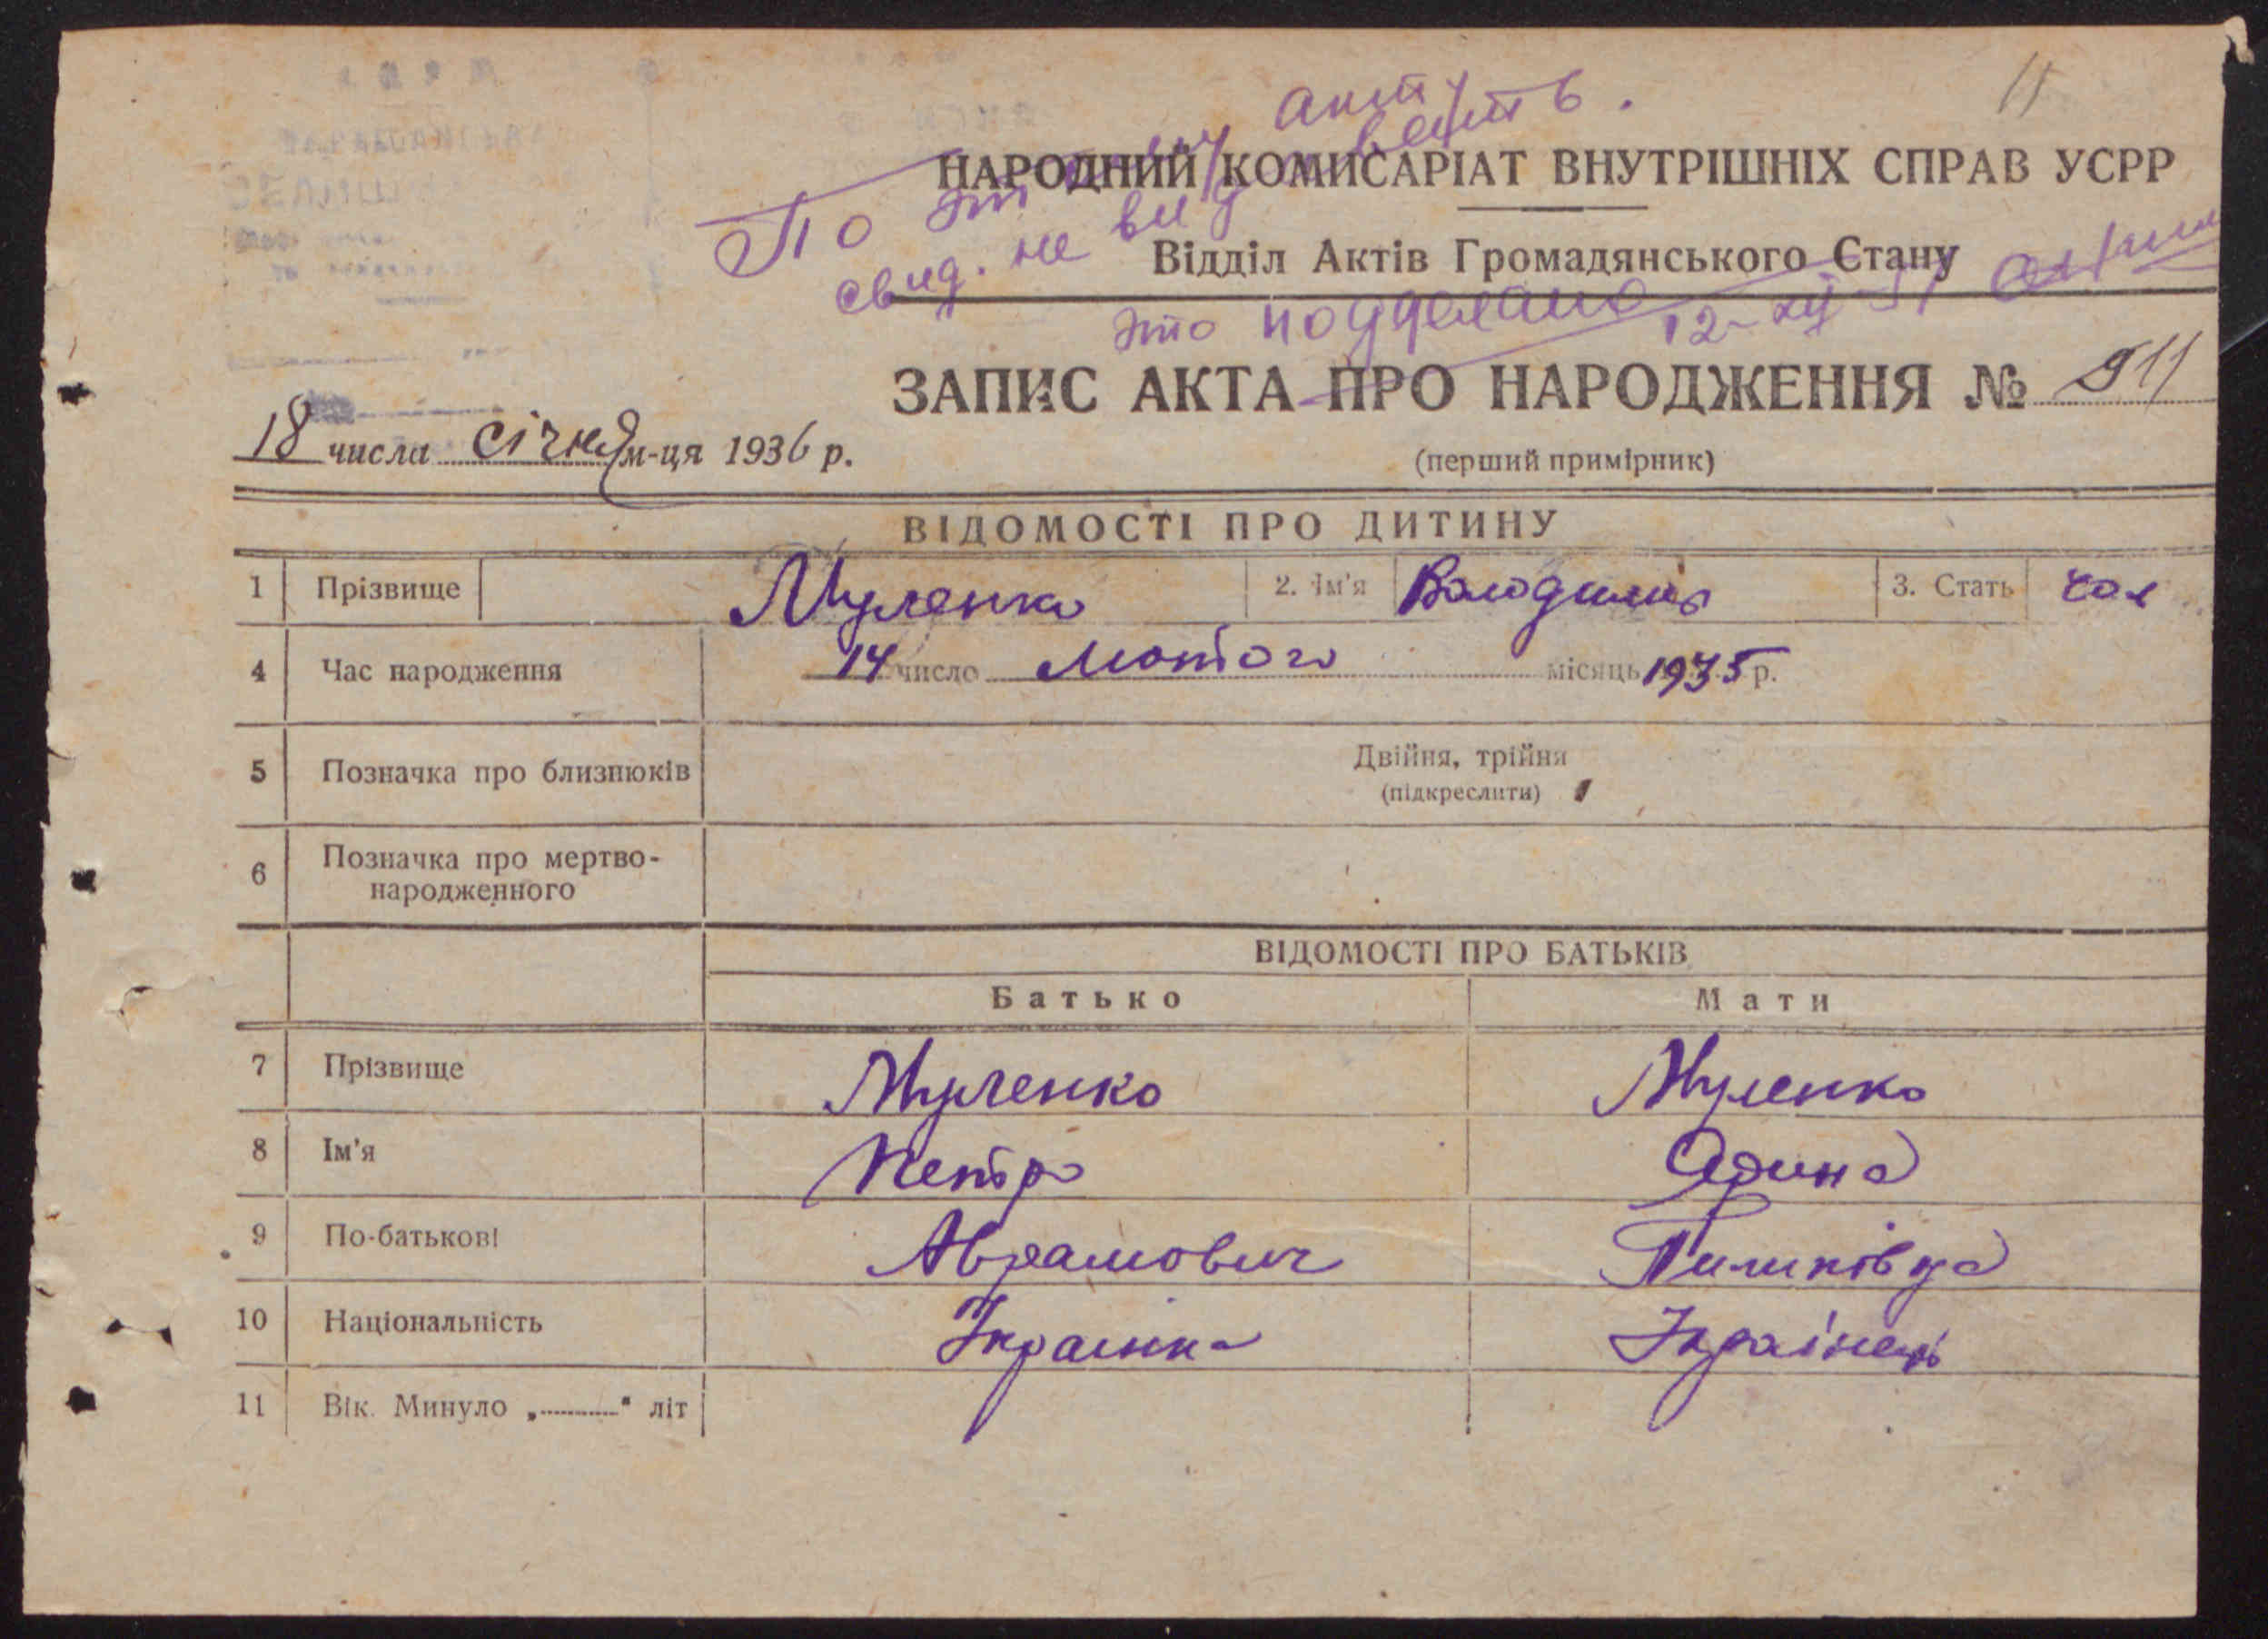 11
По этому акту
свид. не выдавать.
НАРОДНИЙ КОМИСАРІАТ ВНУТРІШНІХ СПРАВ УСРР
Відділ Актів Громадянського Стану
это подделано 12-XII-51
ЗАПИС АКТА ПРО НАРОДЖЕННЯ № 911
18 числа січня м-ця 1936 р.
(перший примірник)
ВІДОМОСТІ ПРО ДИТИНУ
1 Прізвище Муленко 2. Ім'я Володимир 3. Стать чол
4 Час народження 14 число Лютого місяць 1935 р.
5 Позначка про близнюків Двійня, трійня
(підкреслити)
6 Позначка про мертво-
народженного
ВІДОМОСТІ ПРО БАТЬКІВ
Батько Мати
7 Прізвище Муленко Муленко
8 Ім'я Петро
9 По-батькові Аврамович Пилипівна
10 Національність Українка Українець
11 Вік. Минуло „..........“ літ